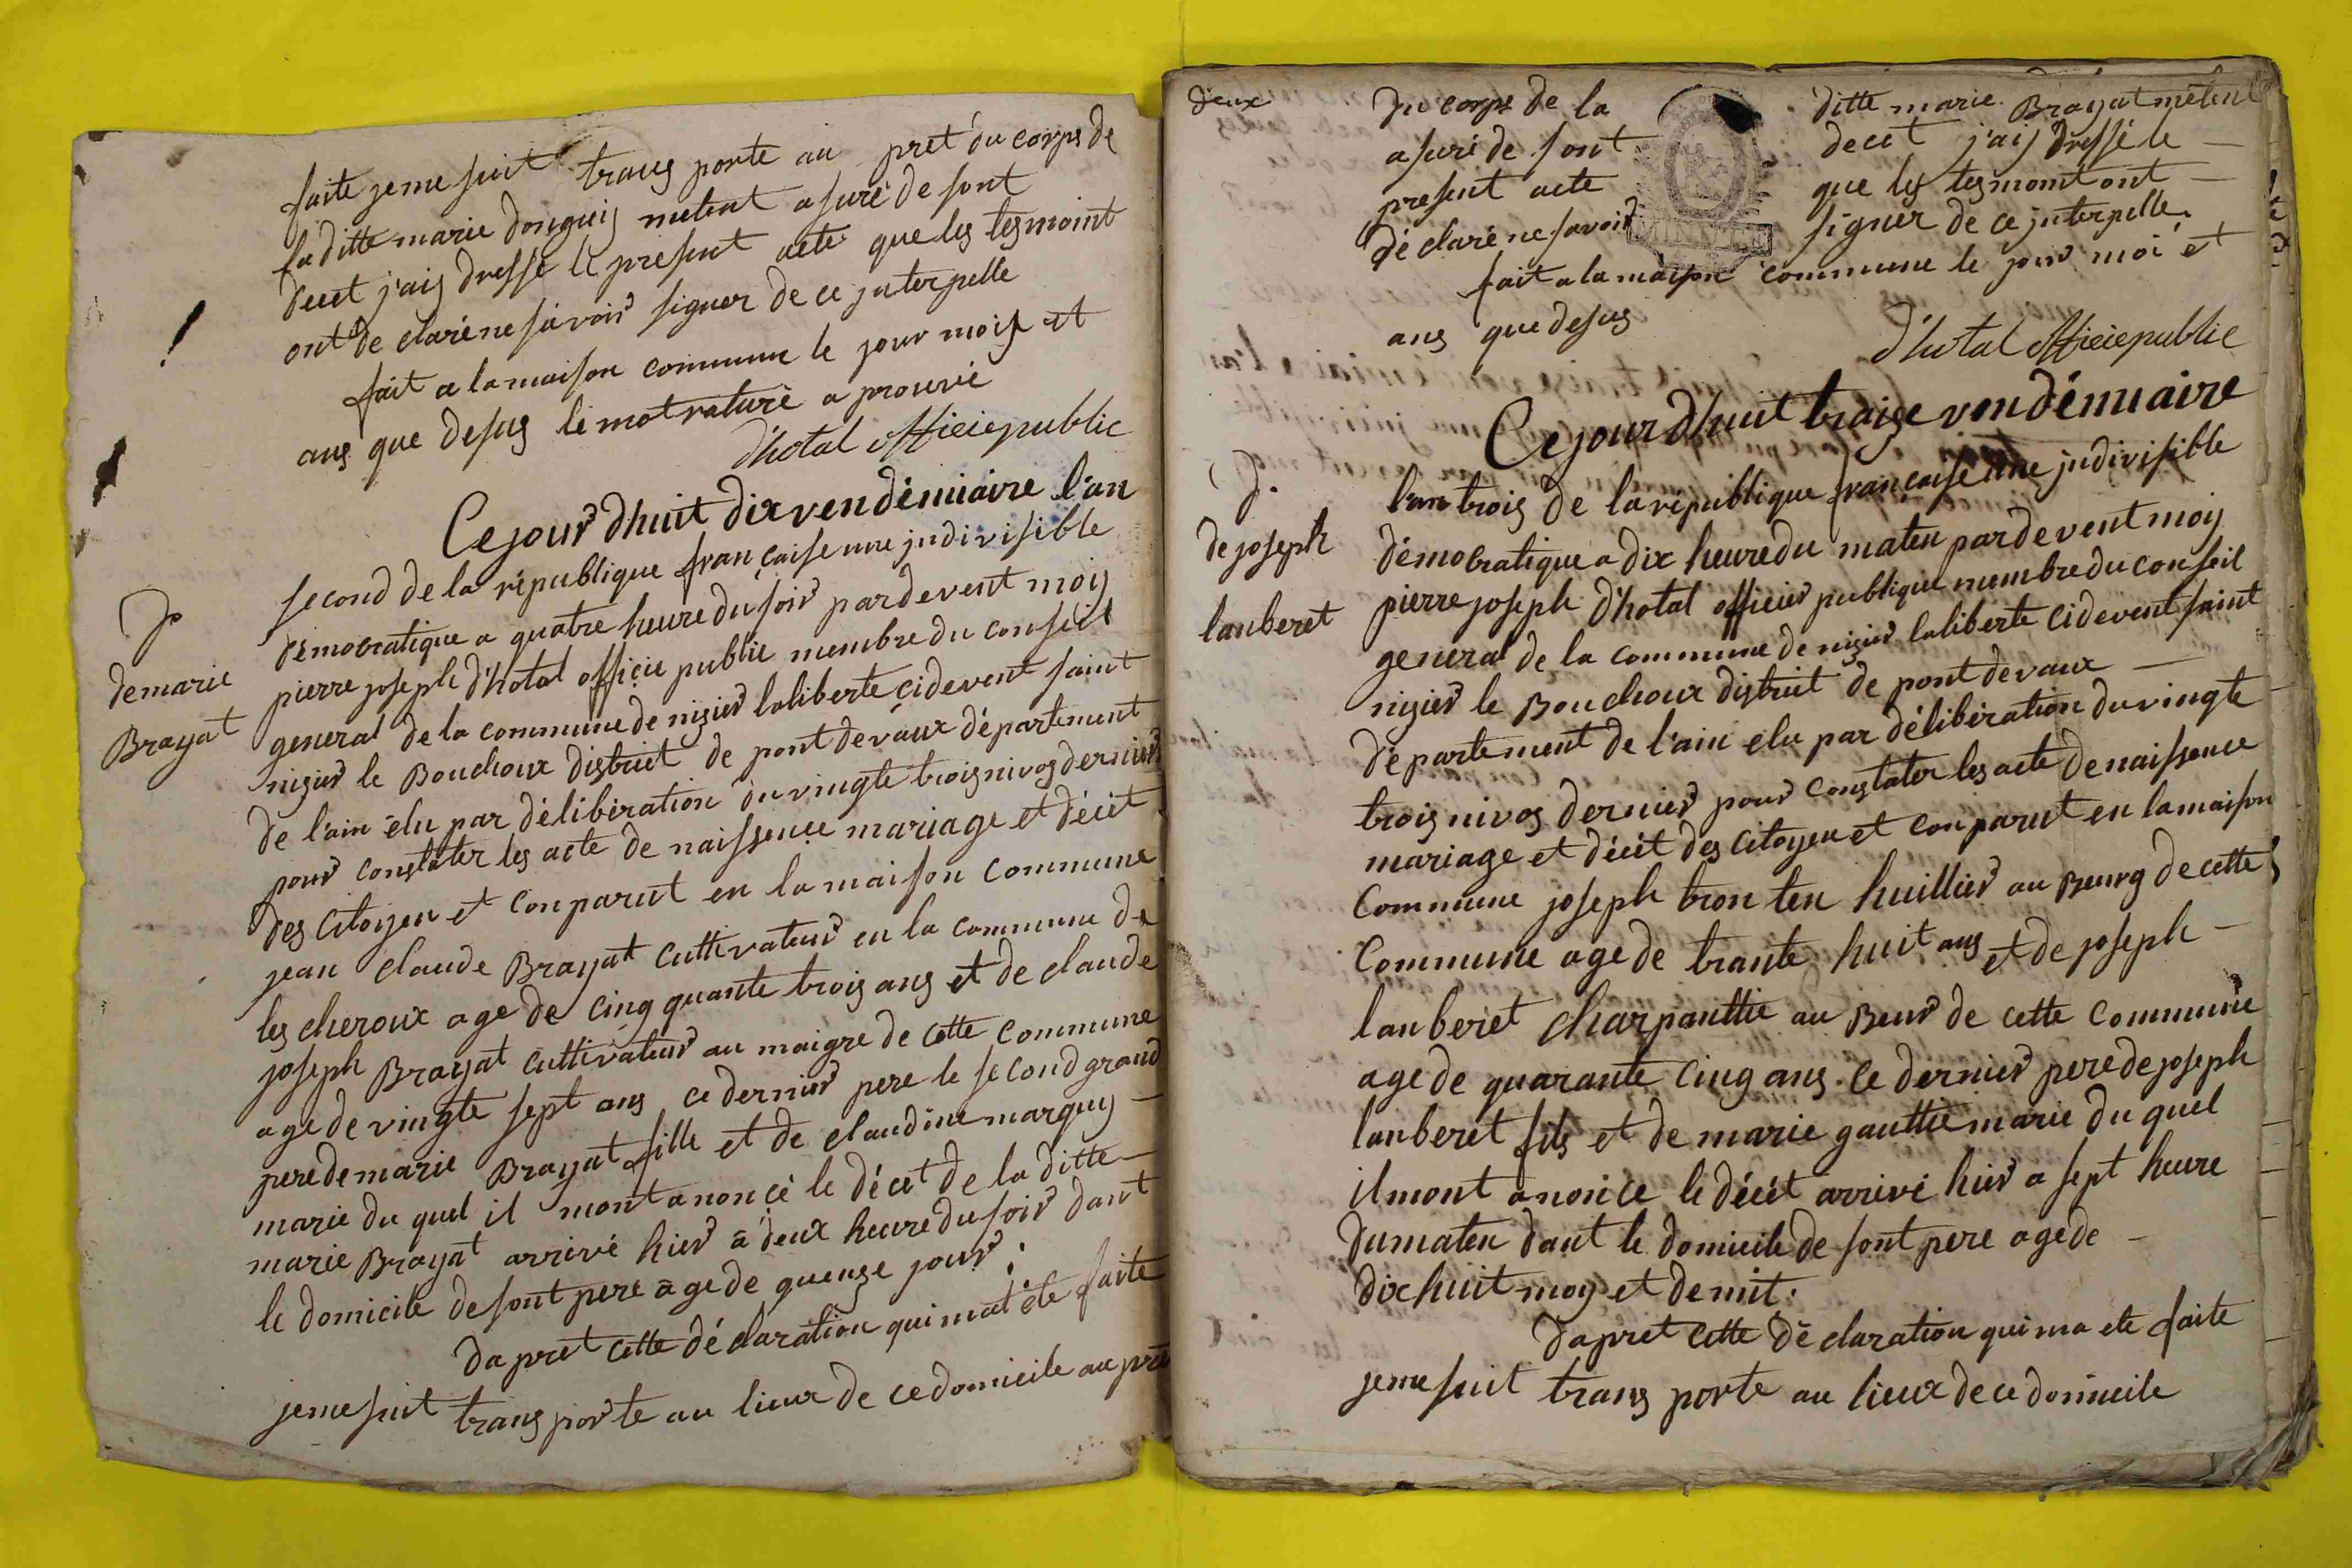 faite jeme suit trans porte au pret du corps de
la ditte marie donguis metent asuré de sont
decet j'ais dressé le present acte que les tesmoint
ont de claré ne savoir signer de ce interpelle
fait a la maison commune le jour mois et
ans que desus le mot raturé a prouvé
d'hotal officie public
Ce jour d'huit dix vendémiaire l'an
second de la république française une indivisible
démocratique a quatre heure du soir pardevent moy
pierre joseph d'hotal officie public membre du conseil
general de la commune de nizier laliberte cidevent saint
nizier le Bouchoux distruit de pont devaux département
de l'ain élu par délibération du vingte trois nivos dernier
pour constater les acte de naissence mariage et décét
des citoyen et conparut en la maison commune
jean claude Brayat cultivateur en la commune de
les cheroux age de cinq quante trois ans et de claude
joseph Brayat cultivateur au maigre de cette commune
age de vingte sept ans ce dernier pere le second grand
pere de marie Brayat fille et de claudine marguy
marie du quel il mont anoncé le décet de la ditte
marie Brayat arrivé hier a deux heure du soir dant
le domicile de sont pere age de quenze jour.
da pret cette dé claration qui mat été faite
jeme suit trans porte au lieux de ce domicile au pre
D.
de marie
Brayat
deux
du corps de la ditte marie Brayat metent
asuré de sont decet j'ais dressé le
present acte que les tesmoint ont
dé claré ne savoir signer de ce interpelle.
fait a la maison commune le jour moi et
ans que desus
d'hotal officie public
MINUTE
Ce jour d'huit traize vendémiaire
l'an trois de la république française une indivisible
démocratique a dix heure du maten pardevent moy
pierre joseph d'hotal officier publique membre du conseil
general de la commune de nizier laliberte cidevent saint
nizier le Bouchoux distruit de pont devaux
département de l'ain elu par délibération du vingte
trois nivos dernier pour constater les acte de naissence
mariage et décét des citoyen et conparut en la maison
commune joseph tronten huillier au Beurg de cette
commune age de trante huit ans et de joseph
lanberet charpanttie au Beur de cette commune
age de quarante cinq ans. ce dernier pere de joseph
lanberet fils et de marie gauttie marie du quel
il mont anonce le décét arrivé hier a sept heure
du maten dant le domicile de sont pere age de
dix huit moy et demit.
da pret cette dé claration qui ma ete faite
jeme suit trans porte au lieux de ce domicile
D.
de joseph
lanberet